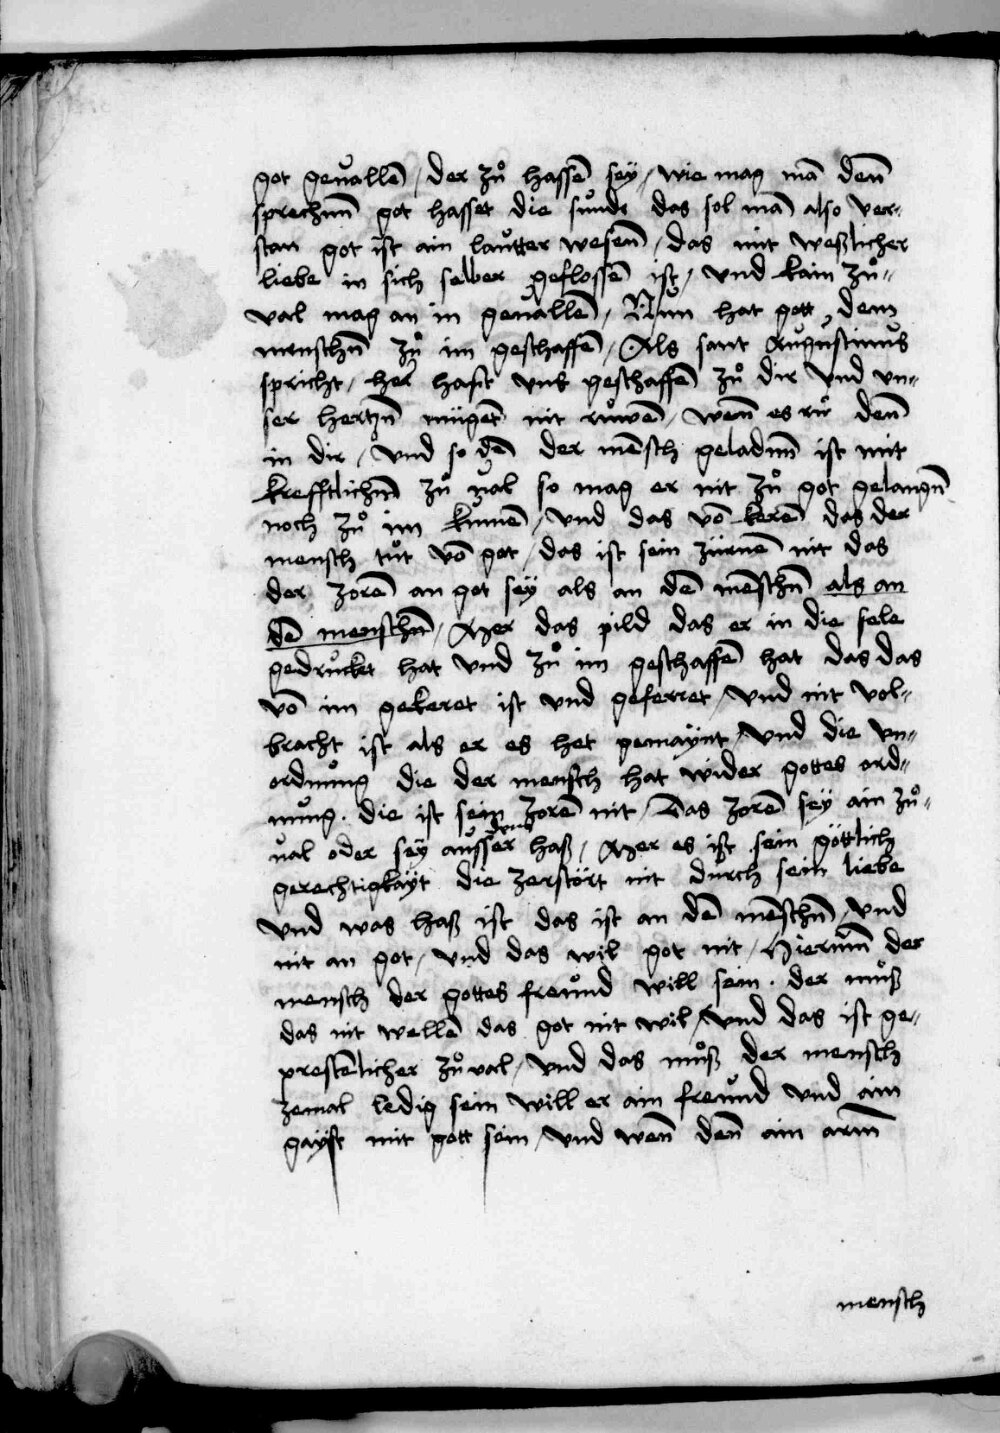 got geuallē / der zů hassē sey / wie mag mā deñ
sprechnn got hasset die sünde das sol mā also ver-
stan got ist ain lautter wesen / das mit weßlicher
liebe in sich selber geflossē ist / vnd kain zů-
val mag an in geuallē / Nun hat gott dem
menschn̄ zů im geschaffē / Als sant Augustinus
spricht / her hast vns geschaffē zů dir vnd vn-
ser hertzn̄ mügēt nit růwē / weñ es rů deñ
in dir / vnd so dē der mēnsch geladnn ist mit
krefftlichnn zů ual so mag er nit zů got gelangn̄
noch zů im kumē / vnd das vō kerē das der
mensch tůt vō got / das ist sein zürnē nit das
der zorē an got sey als an dē mēschn̄ als an
dē menschn̄ / Mer das pild das er in die sele
gedrucket hat vnd zů im geschaffē hat das das
vō im gekeret ist vnd geferret / vnd nit vol-
bracht ist als er es het gemaynt / vnd die vn-
ordnung die der mensch hat wider gottes ord-
nung . die ist sein zorē nit / Das zorē sey ain zů-
ual oder sey ausser haß / Mer es ist sein göttlich
gerechtigkayt die zerstört nit durch sein liebe
vnd was haß ist das ist an dē mēschn̄ / vnd
nit an got / vnd das wil got nit / Hierum̄ der
mensch der gottes freund will sein . der můß
das nit wellē das got nit wil / vnd das ist ge-
prestēlicher zůval / vnd das můß der mensch
zemal ledig sein will er ain freund vnd ain
gayst mit gott sein / vnd weñ deñ ain arm̄
mensch